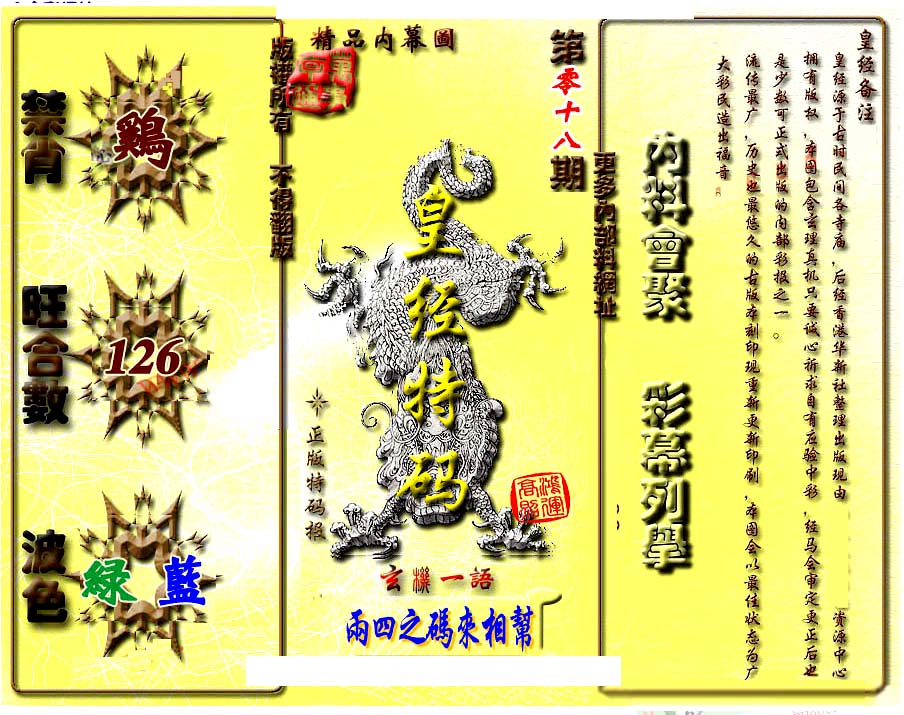 精品內幕圖
第零十八期
版權所有 不得翻版
更多內部料網址
禁肖
鷄
旺合數
126
波色
綠 藍
皇经特码
正版特码报
鴻運高照
玄機一語
兩四之碼來相幫
內料會聚 彩幕列舉
皇经备注
皇经源于古时民间各寺庙,后经香港华新社整理出版现由 资源中心
拥有版权,本图包含玄理真机只要诚心祈求自有应验中彩,经马会审定更正后也
是少数可正式出版的内部彩报之一。
流传最广,历史也最悠久的古版本刻印现重新更新印刷,本图会以最佳状态为广
大彩民造出福音。